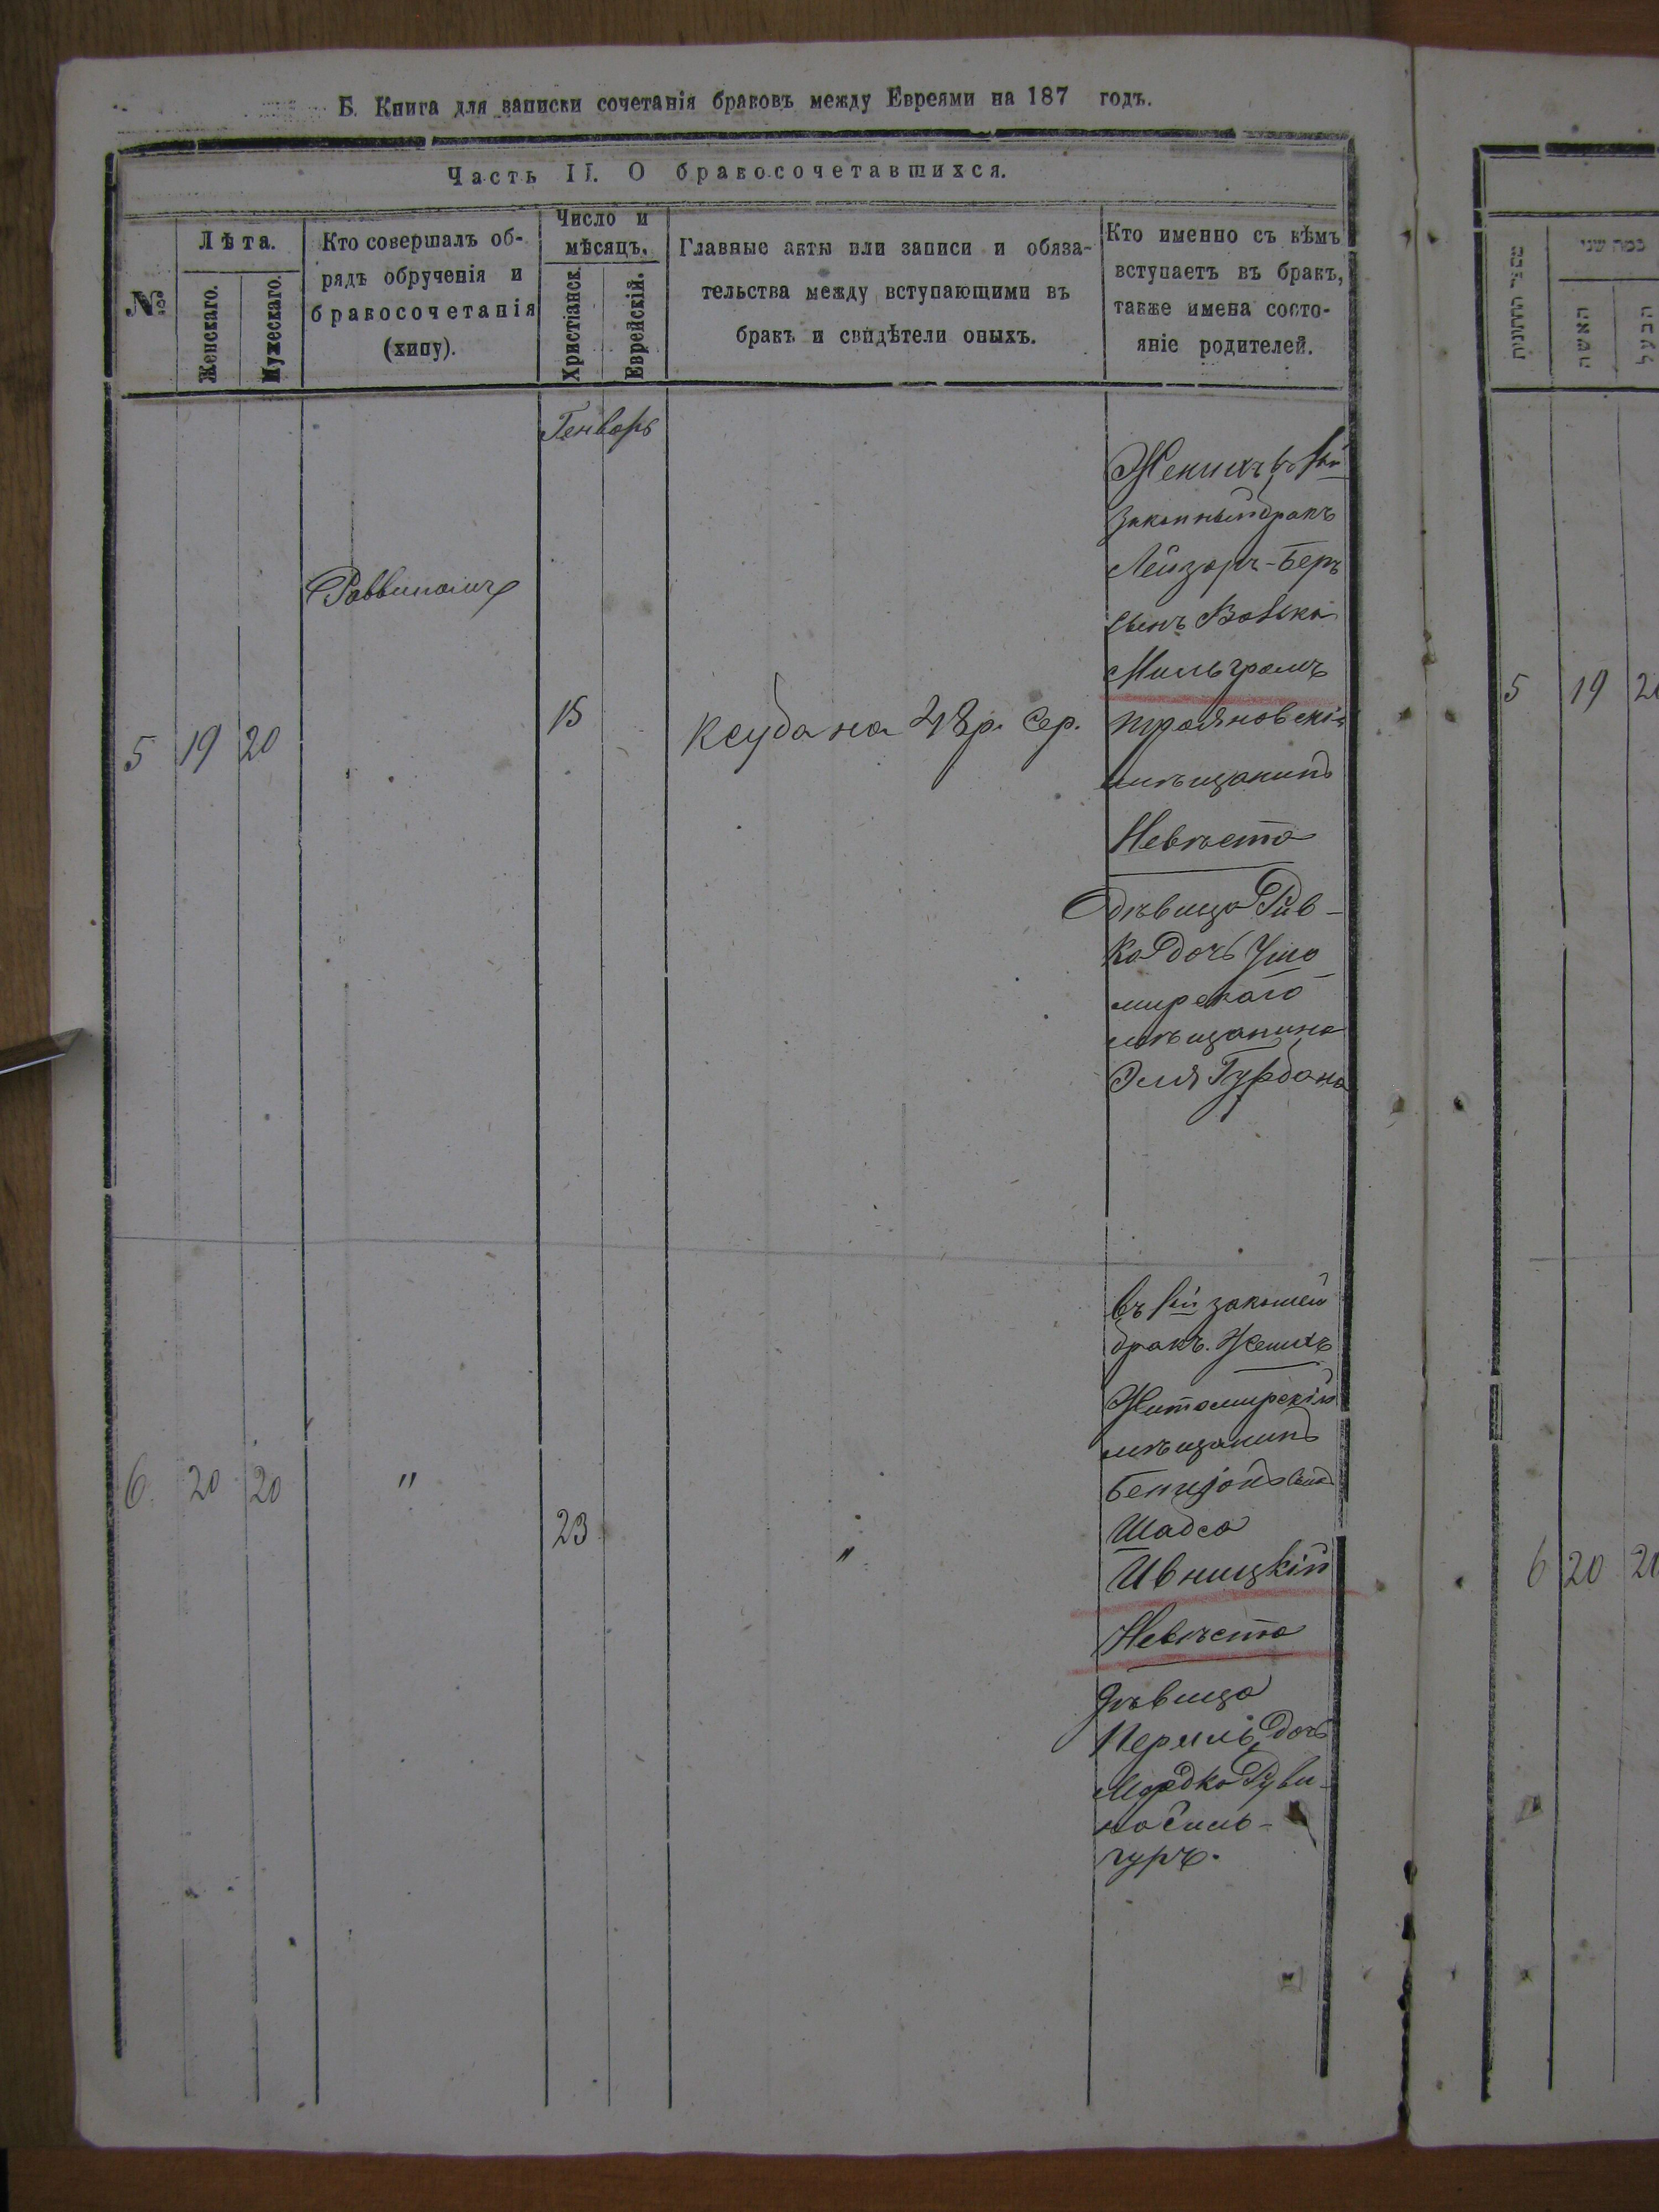 Б. Книга для записки сочетанія браковъ между Евреями на 187 годъ.
Часть II. О бракосочетавшихся.
№
Лѣта.
Женскаго.
Мужескаго.
Кто совершалъ об-
рядъ обрученія и
бракосочетанія
(хипу).
Число и
мѣсяцъ.
Христіянск.
Еврейскій.
Главные акты или записи и обяза-
тельства между вступающими въ
бракъ и свидѣтели оныхъ.
Кто именно съ кѣмъ
вступаетъ въ бракъ,
также имена состо-
яніе родителей.
Генварь
5
19
20
Раввиномъ
15
Ксуба на 48 р. сер.
Женихъ въ 1й
законный бракъ
Лейзоръ-Беръ
сынъ Волька
Мильгромъ
трояновскій
мѣщанинъ
Невѣста
дѣвица Рив-
ка дочь Ушо
мирскаго
мѣщанина
Эля Гурбана
6
20
20
"
23
"
въ 1й законный
бракъ. Женихъ
Житомирскій
мѣщанинъ
Бенціонъ сынъ
Шабса
Ивницкій
Невѣста
Дѣвица
Перель дочь
Мордко Руви-
на
гуръ.
כמה שני
האשה
הבעל
5
19
6
20